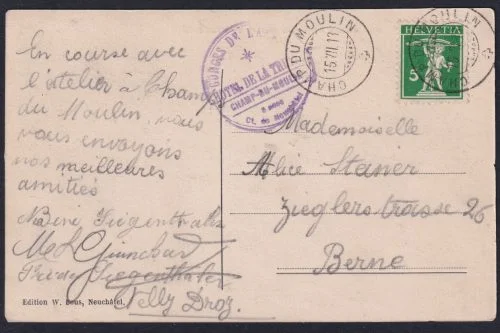 En course avec
l'atelier à Champ
du Moulin, nous
vous envoyons
nos meilleures
amitiés
Siegenthaler
Nelly Droz.
Edition W. Bous, Neuchâtel.
GORGES DE L'A
HÔTEL DE LA TR
CHAMP-DU-MOULIN
Ct. de Neuchâtel
CHAMP DU MOULIN
15.VII.13
HELVETIA
5
Mademoiselle
Alice Staner
Zieglerstrasse 26
Berne